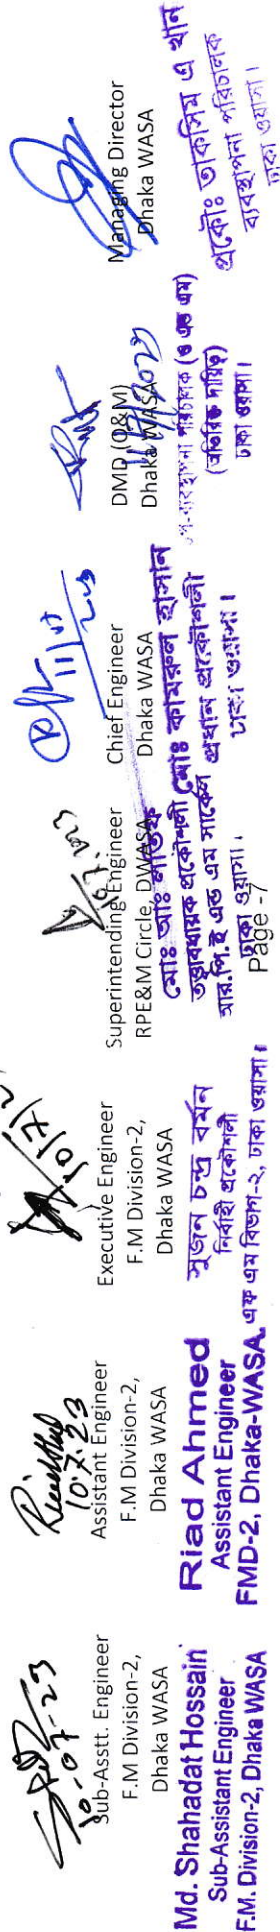 10-07-23
Sub-Asstt. Engineer
F.M Division-2,
Dhaka WASA
Md. Shahadat Hossain
Sub-Assistant Engineer
F.M. Division-2, Dhaka WASA
10.7.23
Assistant Engineer
F.M Division-2,
Dhaka WASA
Riad Ahmed
Assistant Engineer
FMD-2, Dhaka-WASA.
Executive Engineer
F.M Division-2,
Dhaka WASA
সুজন চন্দ্র বর্মন
নির্বাহী প্রকৌশলী
এফ এম বিভাগ-২, ঢাকা ওয়াসা।
Superintending Engineer
RPE&M Circle, DWASA
মোঃ আঃ লতিফ
তত্ত্বাবধায়ক প্রকৌশলী
আর.পি.ই এন্ড এম সার্কেল
ঢাকা ওয়াসা।
Page -7
Chief Engineer
Dhaka WASA
মোঃ কামরুল হাসান
প্রধান প্রকৌশলী
ঢাকা ওয়াসা।
DMD (O&M)
Dhaka WASA
উপ-ব্যবস্থাপনা পরিচালক (ও এন্ড এম)
(অতিরিক্ত দায়িত্ব)
ঢাকা ওয়াসা।
Managing Director
Dhaka WASA
প্রকৌঃ তাকসিম এ খান
ব্যবস্থাপনা পরিচালক
ঢাকা ওয়াসা।